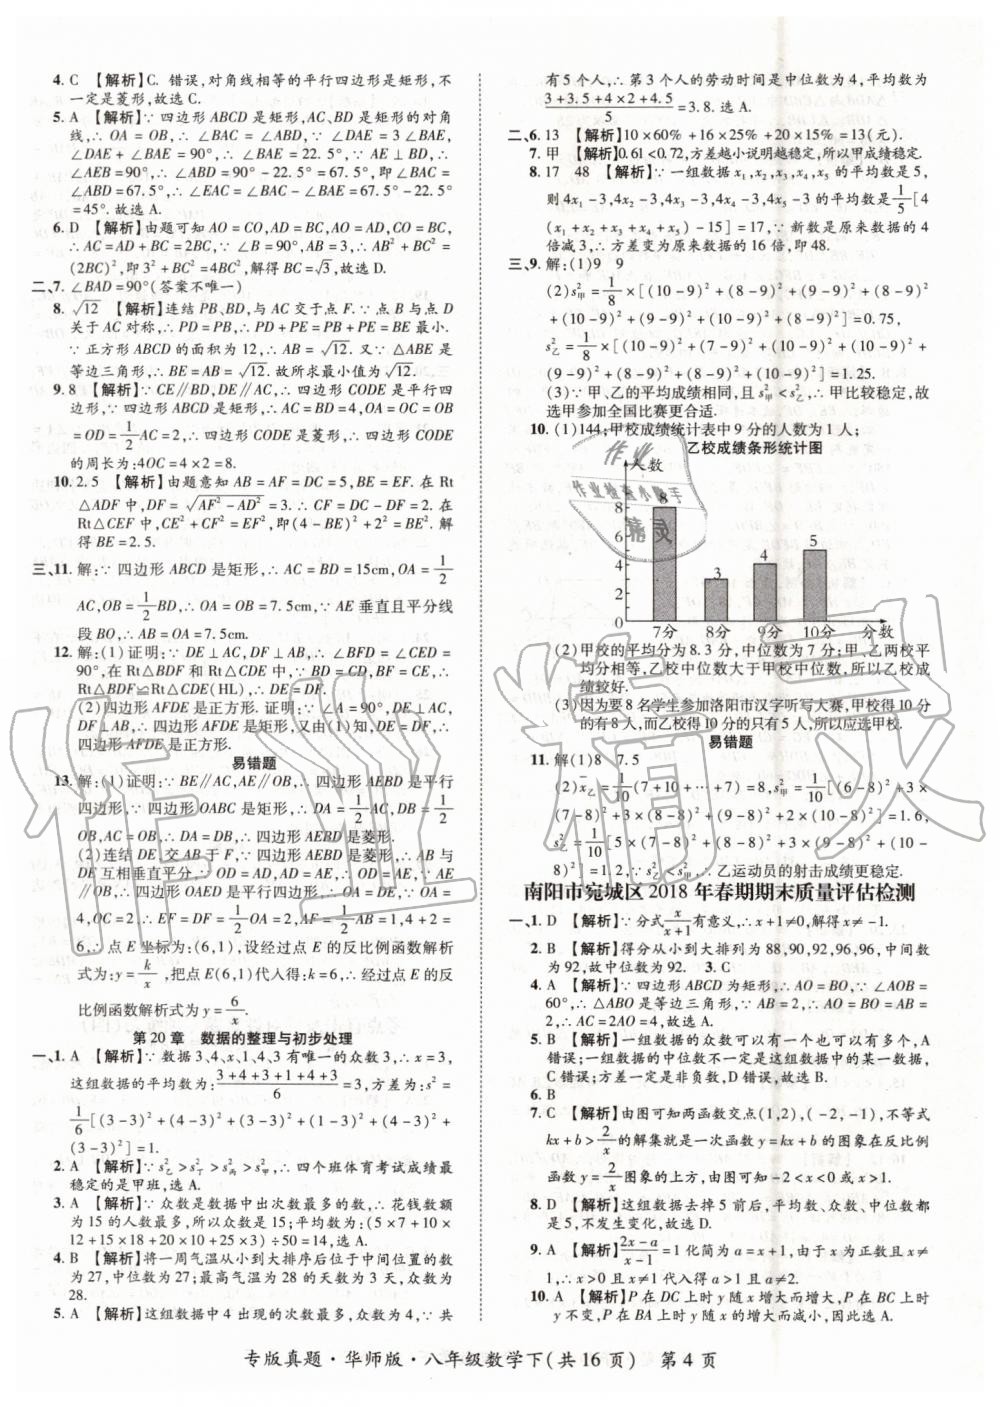 4. C 【解析】C. 错误,对角线相等的平行四边形是矩形,不
一定是菱形,故选 C.
5. A 【解析】∵ 四边形 ABCD 是矩形,AC、BD 是矩形的对角
线,∴ OA = OB,∴ ∠BAC = ∠ABD,∵ ∠DAE = 3∠BAE,
∠DAE + ∠BAE = 90°,∴ ∠BAE = 22. 5°,∵ AE⊥BD,∴
∠AEB = 90°,∴ ∠ABD = 90° − 22. 5° = 67. 5°,即∠BAC =
∠ABD = 67. 5°,∴ ∠EAC = ∠BAC − ∠BAE = 67. 5° − 22. 5°
= 45°. 故选 A.
6. D 【解析】由题可知 AO = CO,AD = BC,AO = AD,CO = BC,
∴ AC = AD + BC = 2BC,∵ ∠B = 90°,AB = 3,∴ AB² + BC² =
(2BC)²,即 3² + BC² = 4BC²,解得 BC = √3,故选 D.
二、7. ∠BAD = 90°(答案不唯一)
8. √12 【解析】连结 PB、BD,与 AC 交于点 F. ∵ 点 B 与点 D
关于 AC 对称,∴ PD = PB,∴ PD + PE = PB + PE = BE 最小.
∵ 正方形 ABCD 的面积为 12,∴ AB = √12. 又∵ △ABE 是
等边三角形,∴ BE = AB = √12. 故所求最小值为 √12.
9. 8 【解析】∵ CE∥BD,DE∥AC,∴ 四边形 CODE 是平行四
边形,∵ 四边形 ABCD 是矩形,∴ AC = BD = 4,OA = OC = OB
= OD = 1/2 AC = 2,∴ 四边形 CODE 是菱形,∴ 四边形 CODE
的周长为:4OC = 4 × 2 = 8.
10. 2. 5 【解析】由题意知 AB = AF = DC = 5,BE = EF. 在 Rt
△ADF 中,DF = √(AF² − AD²) = 3. ∴ CF = DC − DF = 2. 在
Rt△CEF 中,CE² + CF² = EF²,即(4 − BE)² + 2² = BE². 解
得 BE = 2. 5.
三、11. 解:∵ 四边形 ABCD 是矩形,∴ AC = BD = 15cm,OA = 1/2
AC,OB = 1/2 BD,∴ OA = OB = 7. 5cm,∵ AE 垂直且平分线
段 BO,∴ AB = OA = 7. 5cm.
12. 解:(1)证明:∵ DE⊥AC,DF⊥AB,∴ ∠BFD = ∠CED =
90°,在 Rt△BDF 和 Rt△CDE 中,∵ BD = CD,BF = CE,∴
Rt△BDF≌Rt△CDE(HL),∴ DE = DF;
(2)四边形 AFDE 是正方形. 证明:∵ ∠A = 90°,DE⊥AC,
DF⊥AB,∴ 四边形 AFDE 是矩形,又由(1)知,DE = DF,∴
四边形 AFDE 是正方形.
易错题
13. 解:(1)证明:∵ BE∥AC,AE∥OB,∴ 四边形 AEBD 是平行
四边形,∵ 四边形 OABC 是矩形,∴ DA = 1/2 AC,DB = 1/2
OB,AC = OB,∴ DA = DB,∴ 四边形 AEBD 是菱形.
(2)连结 DE,交 AB 于 F,∵ 四边形 AEBD 是菱形,∴ AB 与
DE 互相垂直平分,∵ OD = AD = AE,AE∥OD,∠AOD ≠
90°,∴ 四边形 OAED 是平行四边形,∴ DE∥OA,DE = OA =
4,OC = 2,∴ EF = DF = 1/2 OA = 2,AF = 1/2 AB = 1,4 + 2 =
6,∴ 点 E 坐标为:(6,1),设经过点 E 的反比例函数解析
式为:y = k/x ,把点 E(6,1)代入得:k = 6,∴ 经过点 E 的反
比例函数解析式为 y = 6/x.
第 20 章 数据的整理与初步处理
一、1. A 【解析】∵ 数据 3、4、x、1、4、3 有唯一的众数 3,∴ x = 3,
这组数据的平均数为:(3 + 4 + 3 + 1 + 4 + 3)/6 = 3,方差为:s² =
1/6[(3 − 3)² + (4 − 3)² + (3 − 3)² + (1 − 3)² + (4 − 3)² +
(3 − 3)²] = 1.
2. A 【解析】∵ s²乙 > s²丁 > s²丙 > s²甲,∴ 四个班体育考试成绩最
稳定的是甲班,选 A.
3. A 【解析】∵ 众数是数据中出次数最多的数,∴ 花钱数额
为 15 的人数最多,所以众数是 15;平均数为:(5 × 7 + 10 ×
12 + 15 × 18 + 20 × 10 + 25 × 3) ÷ 50 = 14,选 A.
4. B 【解析】将一周气温从小到大排序后位于中间位置的数
为 27,中位数为 27;最高气温为 28 的天数为 3 天,众数为
28.
5. A 【解析】这组数据中 4 出现的次数最多,众数为 4,∵ 共
有 5 个人,∴ 第 3 个人的劳动时间是中位数为 4,平均数为
(3 + 3. 5 + 4 × 2 + 4. 5)/5 = 3. 8. 选 A.
二、6. 13 【解析】10 × 60% + 16 × 25% + 20 × 15% = 13(元).
7. 甲 【解析】0. 61 < 0. 72,方差越小说明越稳定,所以甲成绩稳定.
8. 17 48 【解析】∵ 一组数据 x₁,x₂,x₃,x₄,x₅ 的平均数是 5,
则 4x₁ − 3,4x₂ − 3,4x₃ − 3,4x₄ − 3,4x₅ − 3 的平均数是 1/5[4
(x₁ + x₂ + x₃ + x₄ + x₅) − 15] = 17,∵ 新数是原来数据的 4
倍减 3,∴ 方差变为原来数据的 16 倍,即 48.
三、9. 解:(1)9 9
(2)s²甲 = 1/8 × [(10 − 9)² + (8 − 9)² + (9 − 9)² + (8 − 9)²
+ (10 − 9)² + (9 − 9)² + (10 − 9)² + (8 − 9)²] = 0. 75,
s²乙 = 1/8 × [(10 − 9)² + (7 − 9)² + (10 − 9)² + (10 − 9)² +
(9 − 9)² + (8 − 9)² + (8 − 9)² + (10 − 9)²] = 1. 25.
(3)∵ 甲、乙的平均成绩相同,且 s²甲 < s²乙,∴ 甲比较稳定,故
选甲参加全国比赛更合适.
10. (1)144;甲校成绩统计表中 9 分的人数为 1 人;
乙校成绩条形统计图
人数
8
8
7
6
5
4
3
2
1
0
3
4
5
7分 8分 9分 10分 分数
(2)甲校的平均分为 8. 3 分,中位数为 7 分;甲、乙两校平
均分相等,乙校中位数大于甲校中位数,所以乙校成
绩较好.
(3)因为要 8 名学生参加洛阳市汉字听写大赛,甲校得 10 分
的有 8 人,而乙校得 10 分的只有 5 人,所以应选甲校.
易错题
11. 解(1)8 7. 5
(2)x̄乙 = 1/10(7 + 10 + ⋯ + 7) = 8,s²甲 = 1/10[(6 − 8)² + 3 ×
(7 − 8)² + 3 × (8 − 8)² + (9 − 8)² + 2 × (10 − 8)²] = 1. 6,
s²乙 = 1/10[5 × (7 − 8)² + (8 − 8)² + 3 × (9 − 8)² + (10 −
8)²] = 1. 2,∵ s²乙 < s²甲,∴ 乙运动员的射击成绩更稳定.
南阳市宛城区 2018 年春期期末质量评估检测
一、1. D 【解析】∵ 分式 x/(x + 1) 有意义,∴ x + 1 ≠ 0,解得 x ≠ −1.
2. B 【解析】得分从小到大排列为 88,90,92,96,96,中间数
为 92,故中位数为 92. 3. C
4. A 【解析】∵ 四边形 ABCD 为矩形,∴ AO = BO,∵ ∠AOB =
60°,∴ △ABO 是等边三角形,∵ AB = 2,∴ AO = BO = AB =
2,∴ AC = 2AO = 4,故选 A.
5. B 【解析】一组数据的众数可以有一个也可以有多个,A
错误;一组数据的中位数不一定是这组数据中的某一数据,
C 错误;方差一定是非负数,D 错误.
6. B
7. C 【解析】由图可知两函数交点(1,2),( −2, −1),不等式
kx + b > 2/x 的解集就是一次函数 y = kx + b 的图象在反比例
函数 y = 2/x 图象的上方,由图可知 −2 < x < 0 或 x > 1.
8. D 【解析】这组数据去掉 5 前后,平均数、众数、中位数都
是 5,不发生变化,故选 D.
9. A 【解析】(2x − a)/(x − 1) = 1 化简为 a = x + 1,由于 x 为正数且 x ≠
1,∴ x > 0 且 x ≠ 1 代入得 a > 1 且 a ≠ 2.
10. A 【解析】P 在 DC 上时 y 随 x 增大而增大,P 在 BC 上时
y 不变,P 在 BA 上时 y 随 x 的增大而减小,因此选 A.
专版真题·华师版·八年级数学下(共 16 页) 第 4 页
作业
作业检查小助手
精灵
作业精灵